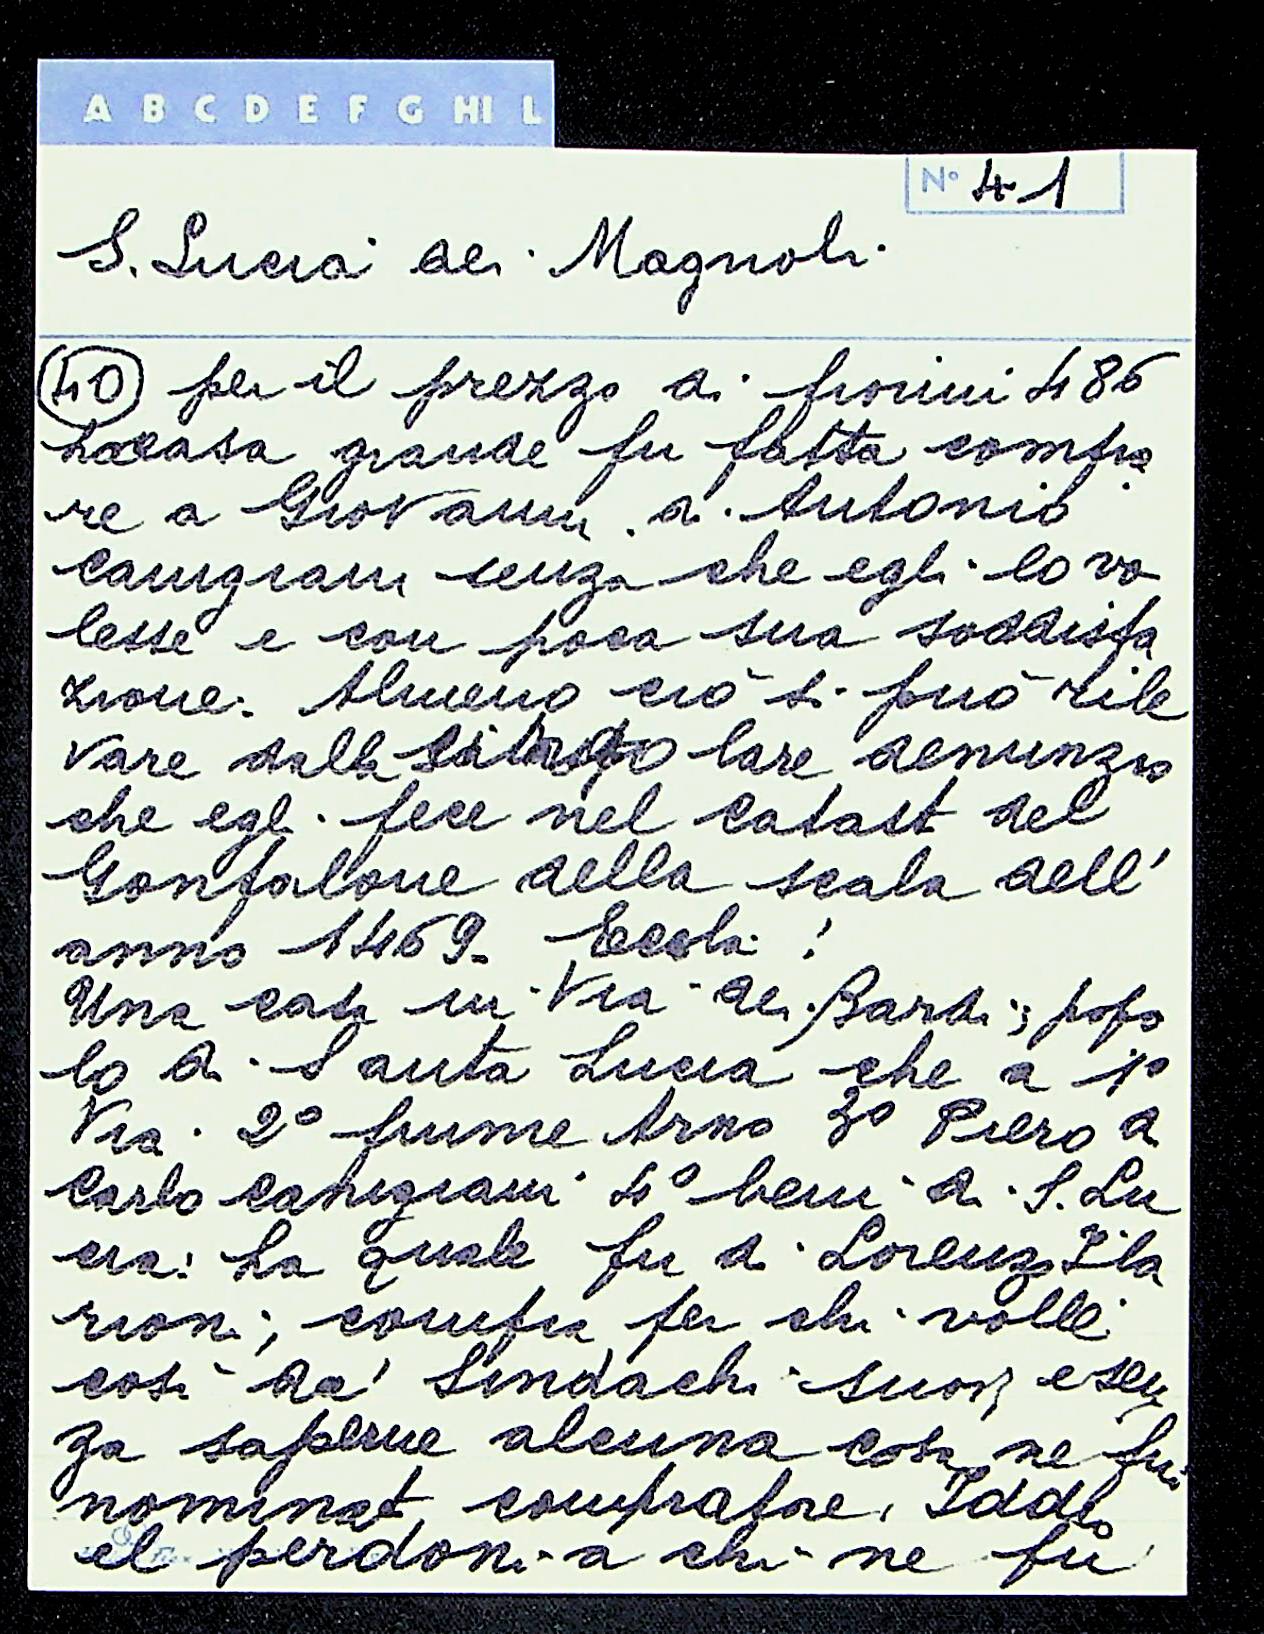 A B C D E F G HI L
Nº 41
S. Lucia dei Magnoli
40 per il prezzo di fiorini 486
La casa grande fu fatta compra
re a Giovanni di Antonio
Canigiani senza che egli lo vo
lesse e con poca sua soddisfa
zione. Almeno ciò si può rile
vare dalla lare denunzia
che egli fece nel catast del
Gonfalone della scala dell'
anno 1469. Eccola:
Una casa in Via dei Bardi; popo
lo di Santa Lucia che a 1º
Via 2º fiume Arno 3º Piero di
Carlo Canigiani 4º beni di S. Lu
cia: La quale fu di Lorenzo Ila
rioni; compra per chi volle
così da' Sindachi suoi e sen
za saperne alcuna cosa ne fui
nominato compratore, Iddio
el perdoni a chi ne fu